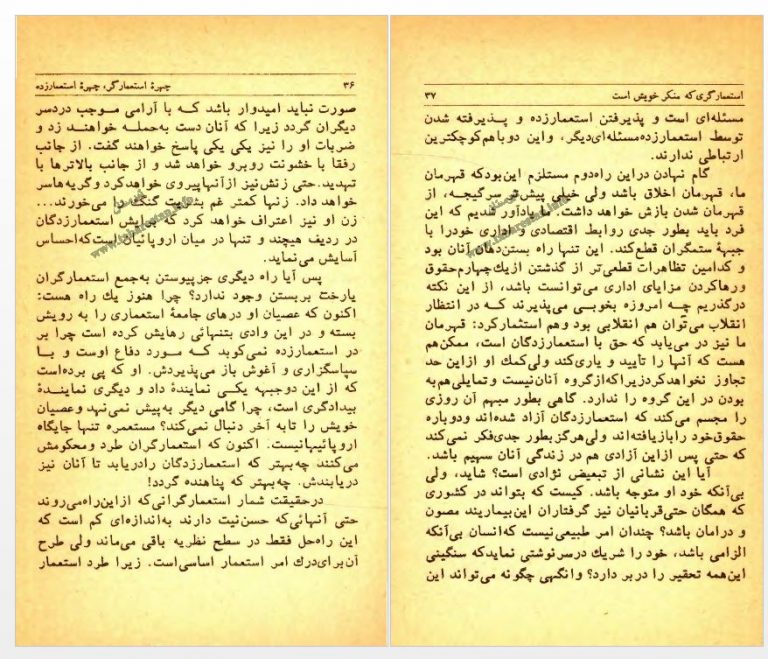 ۳۶ چهرهٔ استعمارگر، چهرهٔ استعمارزده
صورت نباید امیدوار باشد که با آرامی موجب دردسر
دیگران گردد زیرا که آنان دست به‌حمله خواهند زد و
ضربات او را نیز یکی یکی پاسخ خواهند گفت. از جانب
رفقا با خشونت روبرو خواهد شد و از جانب بالاترها با
تهدید. حتی زنش نیز از آنها پیروی خواهد کرد و گریه‌ها سر
خواهد داد. زنها کمتر غم بشریت گنگ را می‌خورند...
زن او نیز اعتراف خواهد کرد که برایش استعمارزدگان
در ردیف هیچند و تنها در میان اروپائیان است که احساس
آسایش می‌نماید.
پس آیا راه دیگری جز پیوستن به‌جمع استعمارگران
یا رخت بربستن وجود ندارد؟ چرا هنوز یك راه هست:
اکنون که عصیان او درهای جامعهٔ استعماری را به رویش
بسته و در این وادی بتنهائی رهایش کرده است چرا بر
در استعمارزده نمی‌کوبد که مورد دفاع اوست و با
سپاسگزاری و آغوش باز می‌پذیردش. او که پی برده است
که از این دو جبهه یکی نمایندهٔ داد و دیگری نمایندهٔ
بیدادگری است، چرا گامی دیگر به پیش نمی‌نهد و عصیان
خویش را تا به آخر دنبال نمی‌کند؟ مستعمره تنها جایگاه
اروپائیها نیست. اکنون که استعمارگران طرد و محکومش
می‌کنند چه بهتر که استعمارزدگان را دریابد تا آنان نیز
دریابندش. چه بهتر که پناهنده گردد!
درحقیقت شمار استعمارگرانی که از این راه می‌روند
حتی آنهائی که حسن‌نیت دارند به‌اندازه‌ای کم است که
این راه‌حل فقط در سطح نظریه باقی می‌ماند ولی طرح
آن برای درك امر استعمار اساسی است. زیرا طرد استعمار
استعمارگری که منکر خویش است ۳۷
مسئله‌ای است و پذیرفتن استعمارزده و پذیرفته شدن
توسط استعمارزده مسئله‌ای دیگر، و این دو با هم کوچکترین
ارتباطی ندارند.
گام نهادن در این راه دوم مستلزم این بود که قهرمان
ما، قهرمان اخلاق باشد ولی خیلی پیش‌تر سرگیجه، از
قهرمان شدن بازش خواهد داشت. ما یادآور شدیم که این
فرد باید بطور جدی روابط اقتصادی و اداری خود را با
جبههٔ ستمگران قطع کند. این تنها راه بستن دهان آنان بود
و کدامین تظاهرات قطعی‌تر از گذشتن از یك چهارم حقوق
و رها کردن مزایای اداری می‌توانست باشد، از این نکته
درگذریم چه امروزه بخوبی می‌پذیرند که در انتظار
انقلاب می‌توان هم انقلابی بود و هم استثمارکرد: قهرمان
ما نیز در می‌یابد که حق با استعمارزدگان است، ممکن هم
هست که آنها را تأیید و یاری کند ولی کمك او از این حد
تجاوز نخواهد کرد زیرا که از گروه آنان نیست و تمایلی هم به
بودن در این گروه را ندارد. گاهی بطور مبهم آن روزی
را مجسم می‌کند که استعمارزدگان آزاد شده‌اند و دوباره
حقوق خود را بازیافته‌اند ولی هرگز بطور جدی فکر نمی‌کند
که حتی پس از این آزادی هم در زندگی آنان سهیم باشد.
آیا این نشانی از تبعیض نژادی است؟ شاید، ولی
بی‌آنکه خود او متوجه باشد. کیست که بتواند در کشوری
که همگان حتی قربانیان نیز گرفتاران این بیماریند مصون
و در امان باشد؟ چندان امر طبیعی نیست که انسان بی‌آنکه
الزامی باشد، خود را شریك در سرنوشتی نماید که سنگینی
این همه تحقیر را در بر دارد؟ وانگهی چگونه می‌تواند این